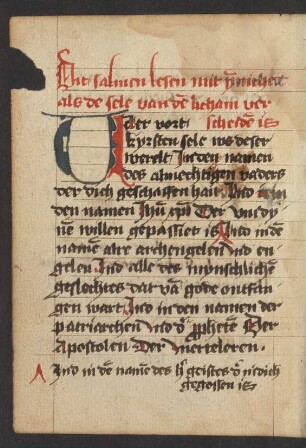 Dit salmen lesen mit ynicheit
als de sele van dē licham ver
Uder vort scheidē is
kyrsten sele vys deser
werelt In den namen
des almechtigen vaders
der dich geschaffen hait Ind in
den namen Jhū xpī Der vm̄ dy
ne willen gepassiet is Ind in dē
namē alre archengelen Ind en
gelen Ind alle des mynschlichē
geslechtes dat vā gode ontfan
gen wart Ind in den namen der
patriarchen Ind d' prophetē Der
Apostolen Der merteleren ·
Ind in dē namē des hē geistes d' in dich
gegossen is